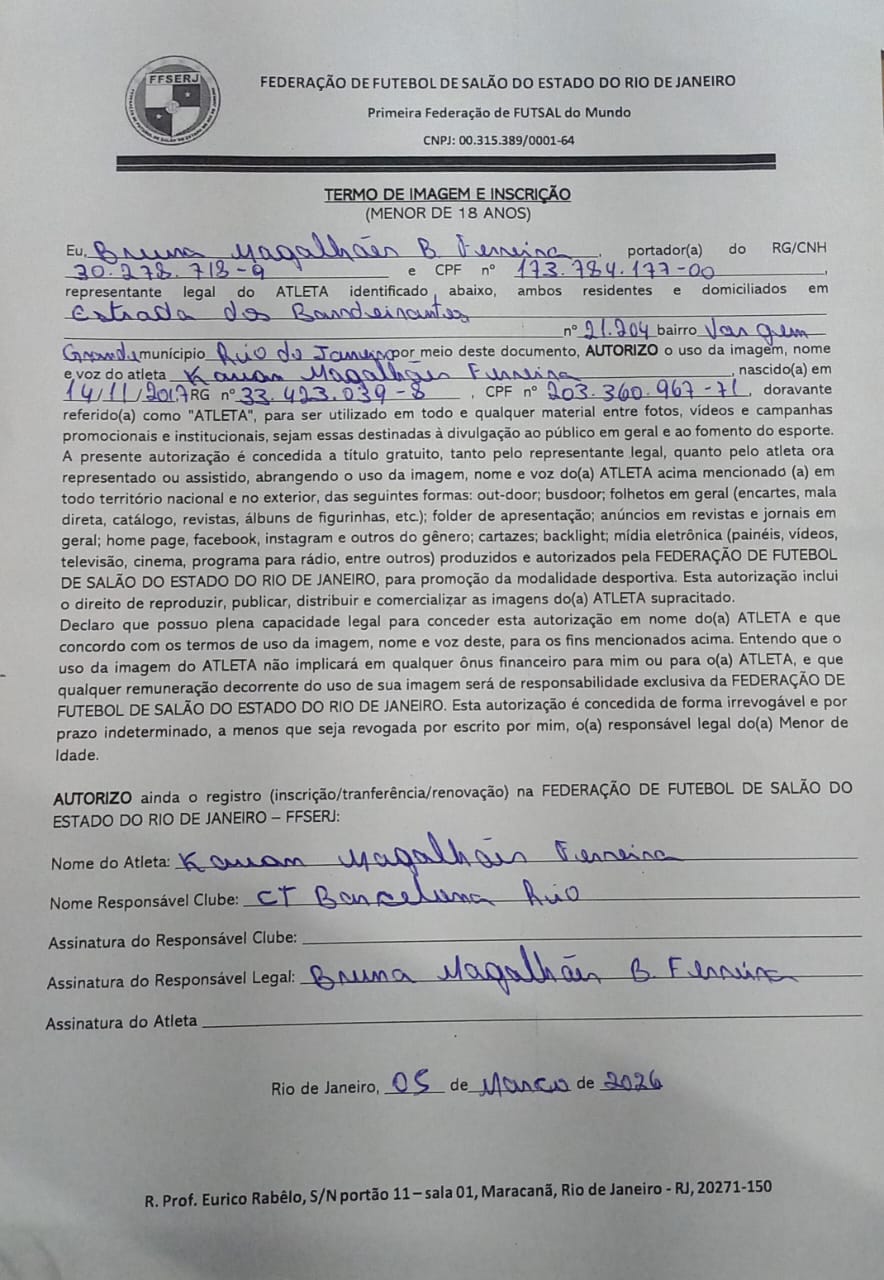 FFSERJ
FEDERAÇÃO DE FUTEBOL DE SALÃO DO ESTADO DO RIO DE JANEIRO
Primeira Federação de FUTSAL do Mundo
CNPJ: 00.315.389/0001-64
TERMO DE IMAGEM E INSCRIÇÃO
(MENOR DE 18 ANOS)
Eu, Bruna Magalhães B. Ferreira, portador(a) do RG/CNH
30.278.718-9 e CPF nº 173.784.177-00,
representante legal do ATLETA identificado abaixo, ambos residentes e domiciliados em
Estrada dos Bandeirantes
nº 21.204 bairro Vargem
Grande munícipio Rio de Janeiro por meio deste documento, AUTORIZO o uso da imagem, nome
e voz do atleta Kauan Magalhães Ferreira, nascido(a) em
14/11/2017 RG nº 33.423.039-8, CPF nº 203.360.967-71, doravante
referido(a) como "ATLETA", para ser utilizado em todo e qualquer material entre fotos, vídeos e campanhas
promocionais e institucionais, sejam essas destinadas à divulgação ao público em geral e ao fomento do esporte.
A presente autorização é concedida a título gratuito, tanto pelo representante legal, quanto pelo atleta ora
representado ou assistido, abrangendo o uso da imagem, nome e voz do(a) ATLETA acima mencionado (a) em
todo território nacional e no exterior, das seguintes formas: out-door; busdoor; folhetos em geral (encartes, mala
direta, catálogo, revistas, álbuns de figurinhas, etc.); folder de apresentação; anúncios em revistas e jornais em
geral; home page, facebook, instagram e outros do gênero; cartazes; backlight; mídia eletrônica (painéis, vídeos,
televisão, cinema, programa para rádio, entre outros) produzidos e autorizados pela FEDERAÇÃO DE FUTEBOL
DE SALÃO DO ESTADO DO RIO DE JANEIRO, para promoção da modalidade desportiva. Esta autorização inclui
o direito de reproduzir, publicar, distribuir e comercializar as imagens do(a) ATLETA supracitado.
Declaro que possuo plena capacidade legal para conceder esta autorização em nome do(a) ATLETA e que
concordo com os termos de uso da imagem, nome e voz deste, para os fins mencionados acima. Entendo que o
uso da imagem do ATLETA não implicará em qualquer ônus financeiro para mim ou para o(a) ATLETA, e que
qualquer remuneração decorrente do uso de sua imagem será de responsabilidade exclusiva da FEDERAÇÃO DE
FUTEBOL DE SALÃO DO ESTADO DO RIO DE JANEIRO. Esta autorização é concedida de forma irrevogável e por
prazo indeterminado, a menos que seja revogada por escrito por mim, o(a) responsável legal do(a) Menor de
Idade.
AUTORIZO ainda o registro (inscrição/tranferência/renovação) na FEDERAÇÃO DE FUTEBOL DE SALÃO DO
ESTADO DO RIO DE JANEIRO – FFSERJ:
Nome do Atleta: Kauan Magalhães Ferreira
Nome Responsável Clube: CT Barcelona Rio
Assinatura do Responsável Clube:
Assinatura do Responsável Legal: Bruna Magalhães B. Ferreira
Assinatura do Atleta
Rio de Janeiro, 05 de Março de 2026
R. Prof. Eurico Rabêlo, S/N portão 11 – sala 01, Maracanã, Rio de Janeiro - RJ, 20271-150